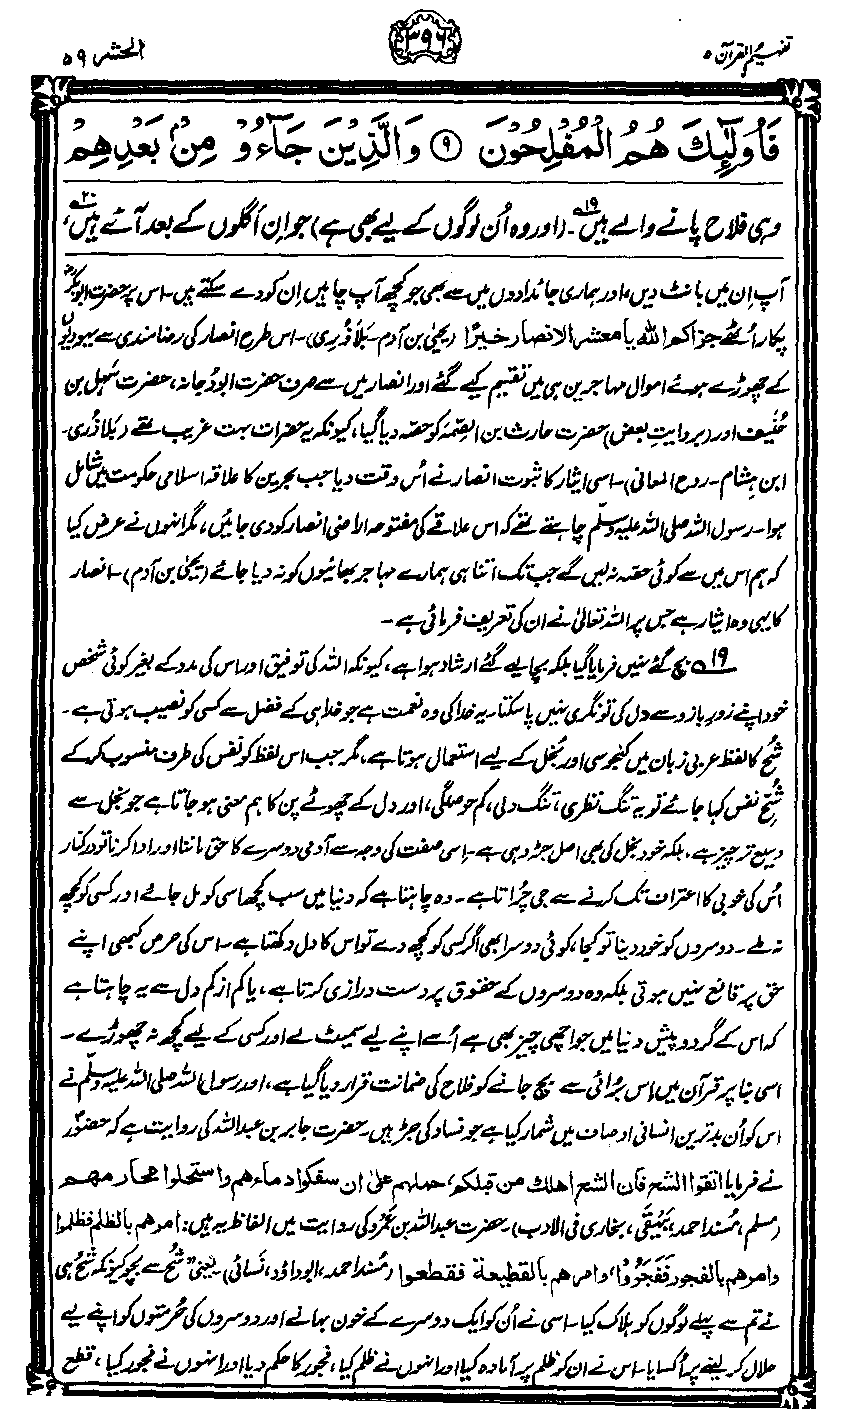 تفہیم القرآن ۵
۳۹۶
الحشر ۵۹
فَأُولَٰٓئِكَ هُمُ الْمُفْلِحُوْنَ ۹ وَالَّذِيْنَ جَآءُوْ مِنْۢ بَعْدِهِمْ
وہی فلاح پانے والے ہیں۱۹۔ (اور وہ اُن لوگوں کے لیے بھی ہے) جو اِن اگلوں کے بعد آئے ہیں۲۰،
آپ اِن میں بانٹ دیں، اور ہماری جائدادوں میں سے بھی جو کچھ آپ چاہیں اِن کو دے سکتے ہیں۔ اس پر حضرت ابوبکرؓ
پکار اُٹھے جزاکم اللہ یا معشر الانصار خیرًا (یحییٰ بن آدم۔ بَلاذُری)۔ اس طرح انصار کی رضا مندی سے یہودیوں
کے چھوڑے ہوئے اموال مہاجرین ہی میں تقسیم کیے گئے اور انصار میں سے صرف حضرت ابودُجانہ، حضرت سَہْل بن
حُنَیف اور (بروایتِ بعض) حضرت حارث بن الصِّمَّہ کو حصّہ دیا گیا، کیونکہ یہ حضرات بہت غریب تھے (بَلاذُری۔
ابن ہشام۔ روح المعانی)۔ اسی ایثار کا ثبوت انصار نے اُس وقت دیا جب بحرین کا علاقہ اسلامی حکومت میں شامل
ہوا۔ رسول اللہ صلی اللہ علیہ وسلم چاہتے تھے کہ اس علاقے کی مفتوحہ اراضی انصار کو دی جائیں، مگر انہوں نے عرض کیا
کہ ہم اس میں سے کوئی حصّہ نہ لیں گے جب تک اتنا ہی ہمارے مہاجر بھائیوں کو نہ دیا جائے (یحییٰ بن آدم)۔ انصار
کا یہی وہ ایثار ہے جس پر اللہ تعالیٰ نے ان کی تعریف فرمائی ہے۔
۱۹ بچ گئے نہیں فرمایا گیا بلکہ بچا لیے گئے ارشاد ہوا ہے، کیونکہ اللہ کی توفیق اور اس کی مدد کے بغیر کوئی شخص
خود اپنے زورِ بازو سے دل کی تونگری نہیں پا سکتا۔ یہ خدا کی وہ نعمت ہے جو خدا ہی کے فضل سے کسی کو نصیب ہوتی ہے۔
شُحّ کا لفظ عربی زبان میں کنجوسی اور بخل کے لیے استعمال ہوتا ہے، مگر جب اس لفظ کو نفس کی طرف منسوب کرکے
شُحِّ نفس کہا جائے تو یہ تنگ نظری، تنگ دلی، کم حوصلگی، اور دل کے چھوٹے پن کا ہم معنی ہو جاتا ہے جو بخل سے
وسیع تر چیز ہے، بلکہ خود بخل کی بھی اصل جڑ وہی ہے۔ اِسی صفت کی وجہ سے آدمی دوسرے کا حق ماننا اور ادا کرنا تو درکنار
اُس کی خوبی کا اعتراف تک کرنے سے جی چُراتا ہے۔ وہ چاہتا ہے کہ دنیا میں سب کچھ اسی کو مل جائے اور کسی کو کچھ
نہ ملے۔ دوسروں کو خود دینا تو کجا، کوئی دوسرا بھی اگر کسی کو کچھ دے تو اس کا دل دکھتا ہے۔ اس کی حرص کبھی اپنے
حق پر قانع نہیں ہوتی بلکہ وہ دوسروں کے حقوق پر دست درازی کرتا ہے، یا کم از کم دل سے یہ چاہتا ہے
کہ اس کے گرد و پیش دنیا میں جو اچھی چیز بھی ہے اُسے اپنے لیے سمیٹ لے اور کسی کے لیے کچھ نہ چھوڑے۔
اسی بنا پر قرآن میں اس بُرائی سے بچ جانے کو فلاح کی ضمانت قرار دیا گیا ہے، اور رسول اللہ صلی اللہ علیہ وسلم نے
اس کو اُن بدترین انسانی اوصاف میں شمار کیا ہے جو فساد کی جڑ ہیں۔ حضرت جابر بن عبد اللہ کی روایت ہے کہ حضورؐ
نے فرمایا اتقوا الشح فان الشح اھلك من قبلکم، حملھم علیٰ ان سفکوا دماءھم واستحلوا محارمھم
(مسلم، مُسند احمد، بَیہَقی، بخاری فی الادب)۔ حضرت عبد اللہ بن عَمْرو کی روایت میں الفاظ یہ ہیں: امرھم بالظلم فظلموا
وامرھم بالفجور ففجروا، وامرھم بالقطیعة فقطعوا (مُسند احمد، ابوداؤد، نَسائی)۔ یعنی "شُحّ سے بچو کیونکہ شُحّ ہی
نے تم سے پہلے لوگوں کو ہلاک کیا۔ اسی نے اُن کو ایک دوسرے کے خون بہانے اور دوسروں کی حُرمتوں کو اپنے لیے
حلال کر لینے پر اُکسایا۔ اس نے ان کو ظلم پر آمادہ کیا اور انہوں نے ظلم کیا، فجور کا حکم دیا اور انہوں نے فجور کیا، قطع